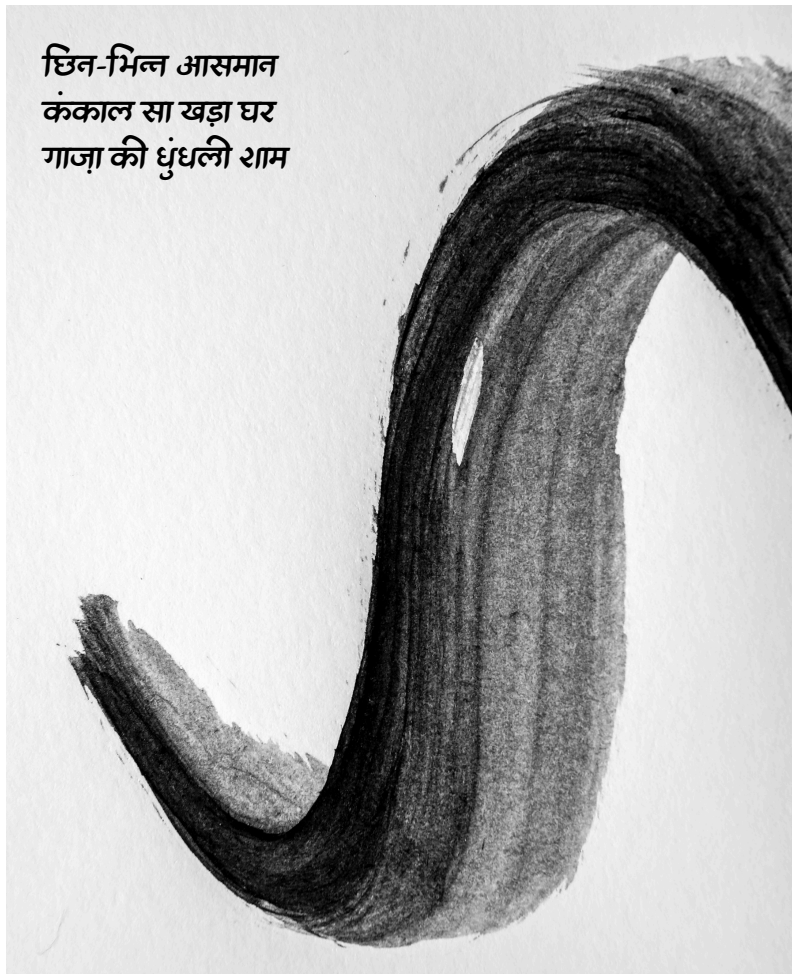 छिन-भिन्न आसमान
कंकाल सा खड़ा घर
गाज़ा की धुंधली शाम